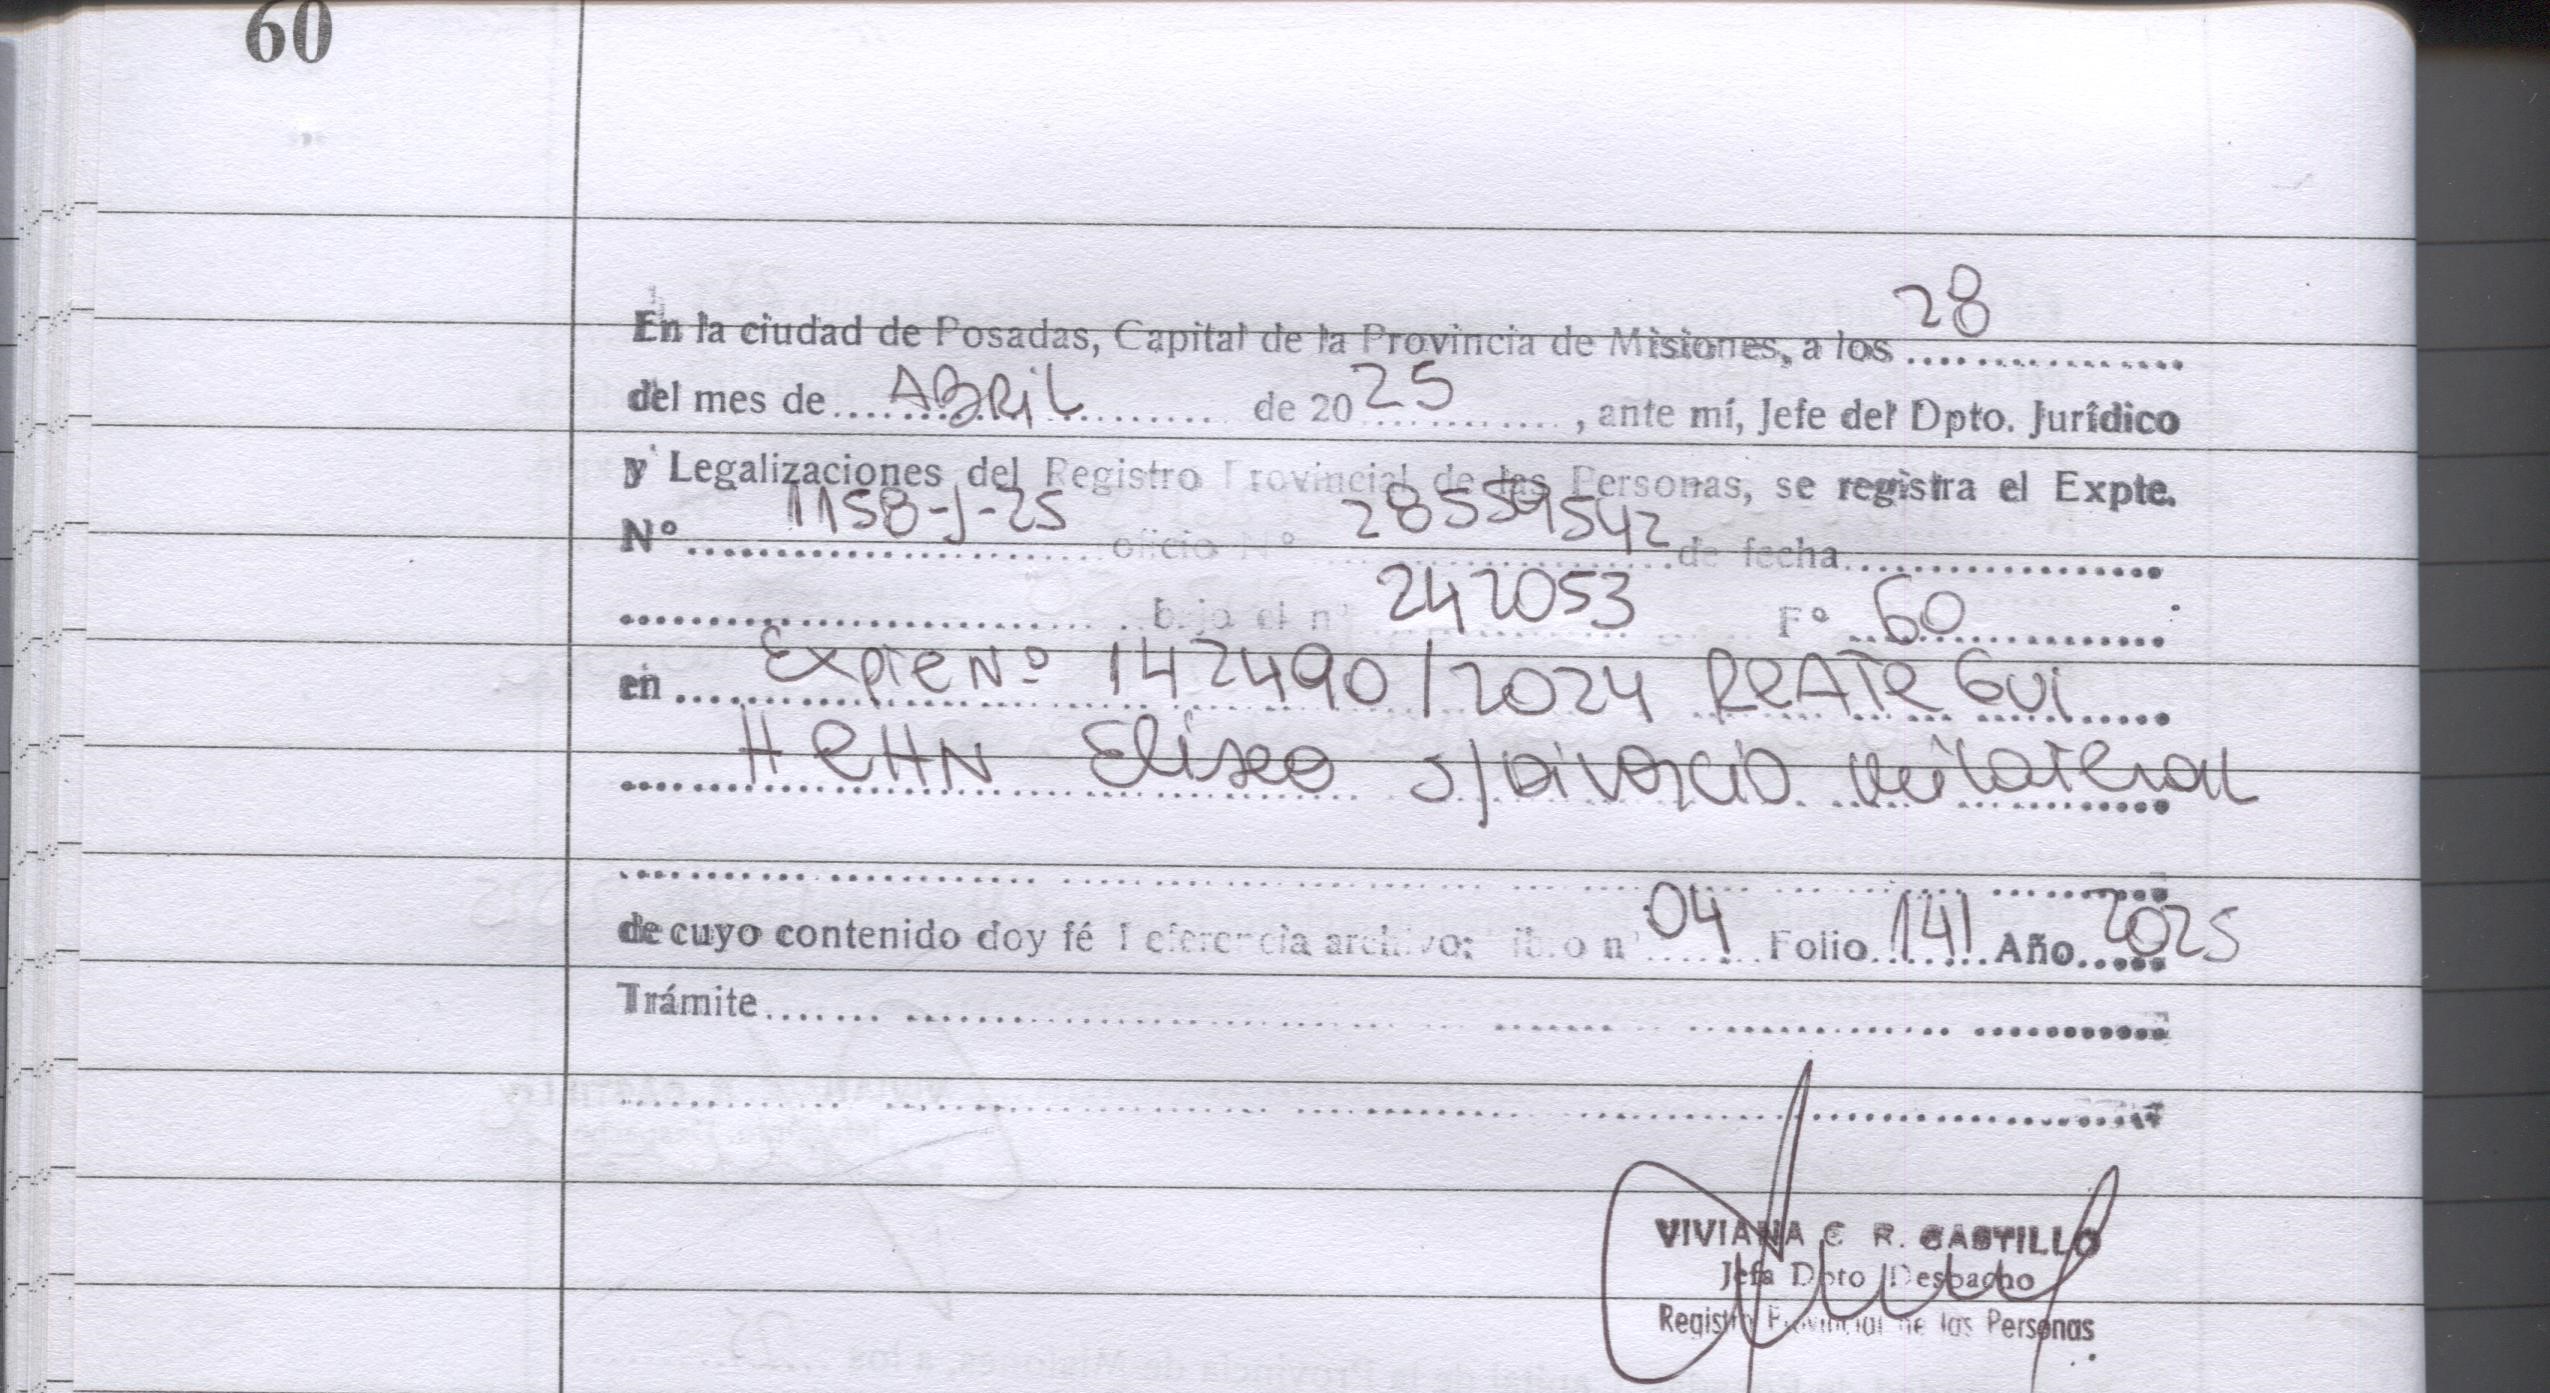 60
En la ciudad de Posadas, Capital de la Provincia de Misiones, a los 28
del mes de ABRIL de 2025, ante mí, Jefe del Dpto. Jurídico
y Legalizaciones del Registro Provincial de las Personas, se registra el Expte.
Nº 1158-J-25 oficio Nº 28559542 de fecha
bajo el nº 242053 Fº 60
en Expte Nº 142490/2024 REATEGUI
HEHN Eliseo s/Divorcio unilateral
de cuyo contenido doy fé Referencia archivo: libro nº 04 Folio 141 Año 2025
Trámite
VIVIANA C R. CASTILLO
Jefa Dpto Despacho
Registro Provincial de las Personas